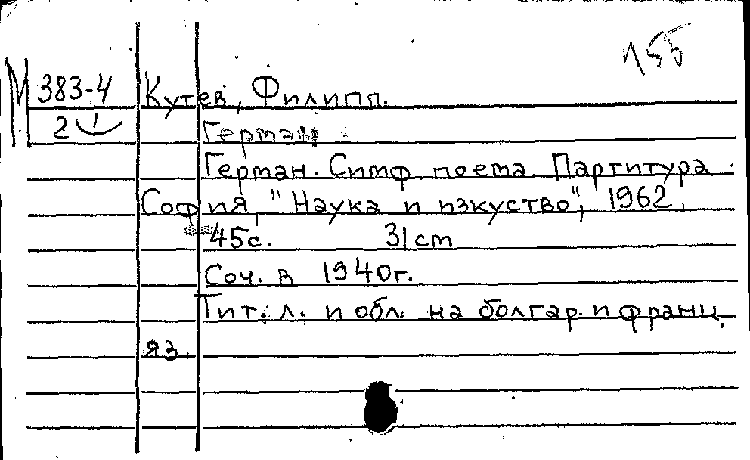 155
М 383-4
2
Кутев, Филипп.
Герман
Герман. Симф. поема Партитура.
София, "Наука и изкуство", 1962
45с. 31cm
Соч. в 1940г.
Тит. л. и обл. на болгар. и франц.
яз.